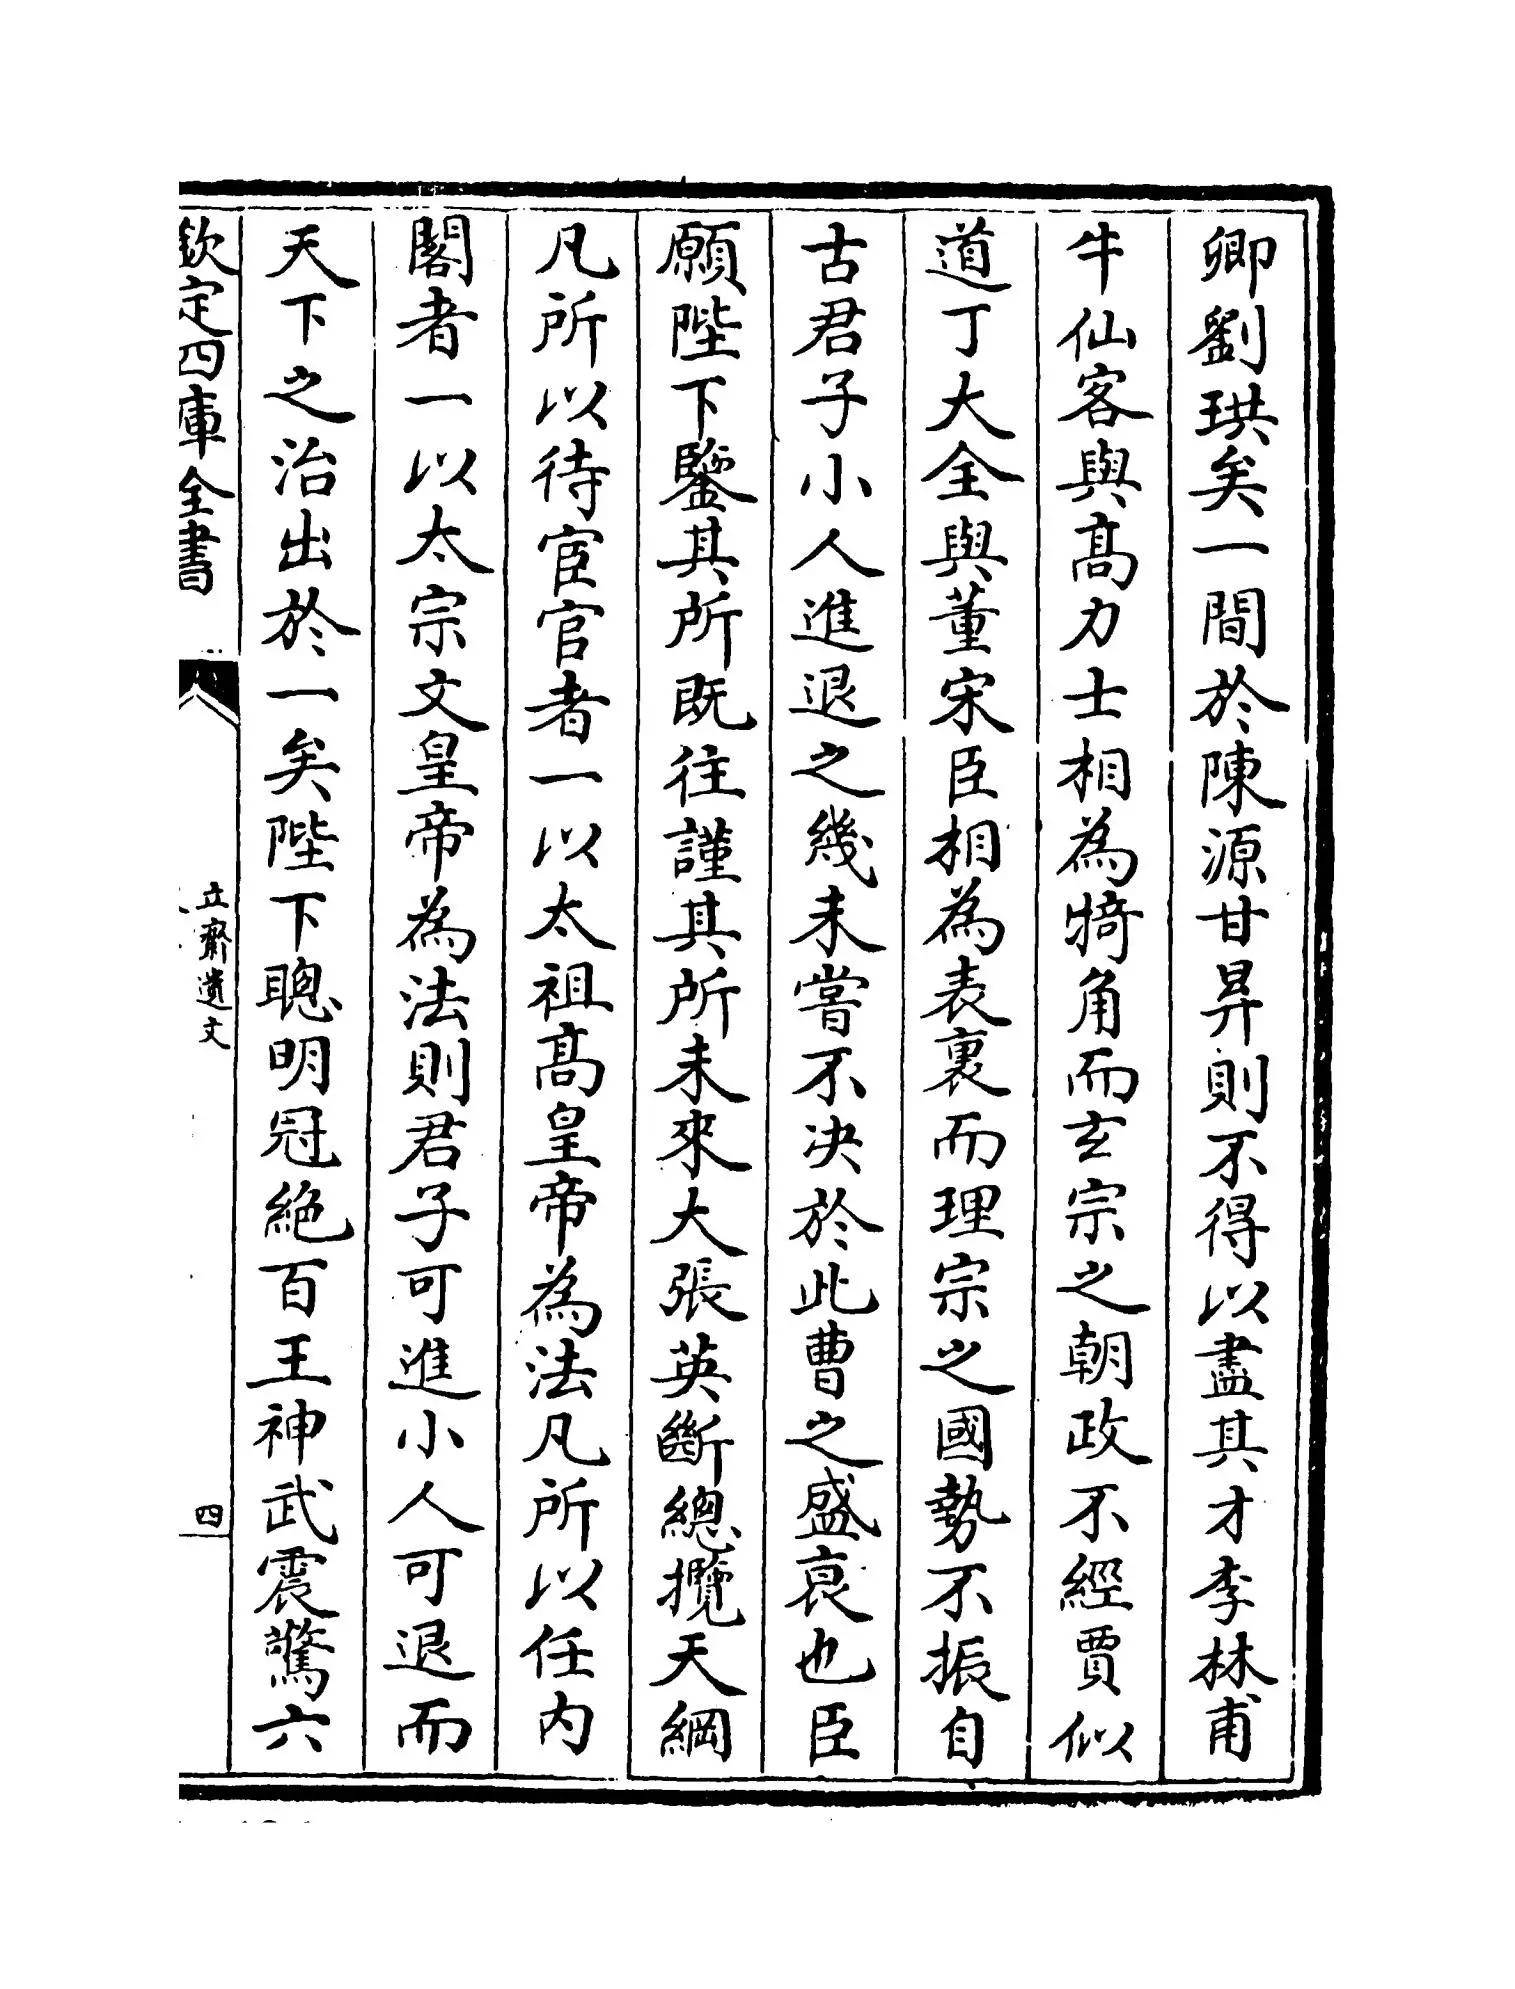 卿劉珙矣一間於陳源甘昇則不得以盡其才李林甫
牛仙客與髙力士相為犄角而玄宗之朝政不經賈似
道丁大全與董宋臣相為表裏而理宗之國勢不振自
古君子小人進退之幾未嘗不决於此曹之盛衰也臣
願陛下鑒其所既往謹其所未來大張英斷總攬天綱
凡所以待宦官者一以太祖髙皇帝為法凡所以任内
閣者一以太宗文皇帝為法則君子可進小人可退而
天下之治出於一矣陛下聰明冠絶百王神武震驚六
欽定四庫全書
立齋遺文
四